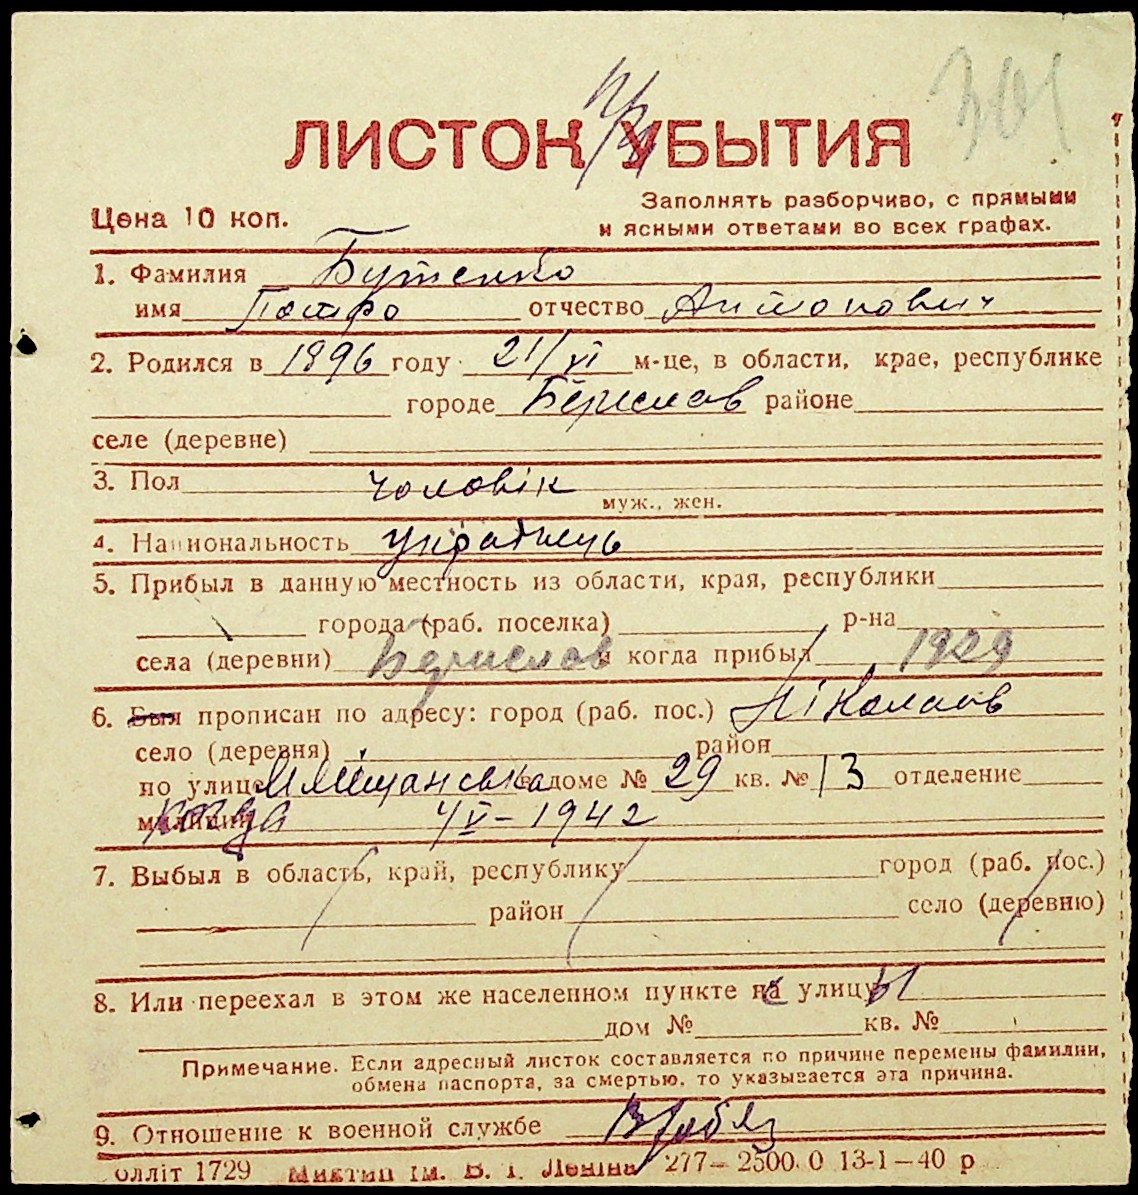 301
ЛИСТОК УБЫТИЯ
Цена 10 коп.
Заполнять разборчиво, с прямыми
и ясными ответами во всех графах.
1. Фамилия Бутенко
имя Петро отчество Антонович
2. Родился в 1896 году 21/VI м-це, в области, крае, республике
городе Берислав районе
селе (деревне)
3. Пол чоловік
муж., жен.
4. Национальность українець
5. Прибыл в данную местность из области, края, республики
города (раб. поселка) р-на
села (деревни) Берислав и когда прибыл 1929
6. Был прописан по адресу: город (раб. пос.) Ніколаїв
село (деревня) район
по улице Мліщанська в доме № 29 кв. № 13 отделение
милиции когда 4/V-1942
7. Выбыл в область, край, республику город (раб. пос.)
район село (деревню)
8. Или переехал в этом же населенном пункте на улицу
дом № кв. №
Примечание. Если адресный листок составляется по причине перемены фамилии,
обмена паспорта, за смертью, то указывается эта причина.
9. Отношение к военной службе
олліт 1729 ім. В. І. Леніна 277—2500.0 13-1—40 р